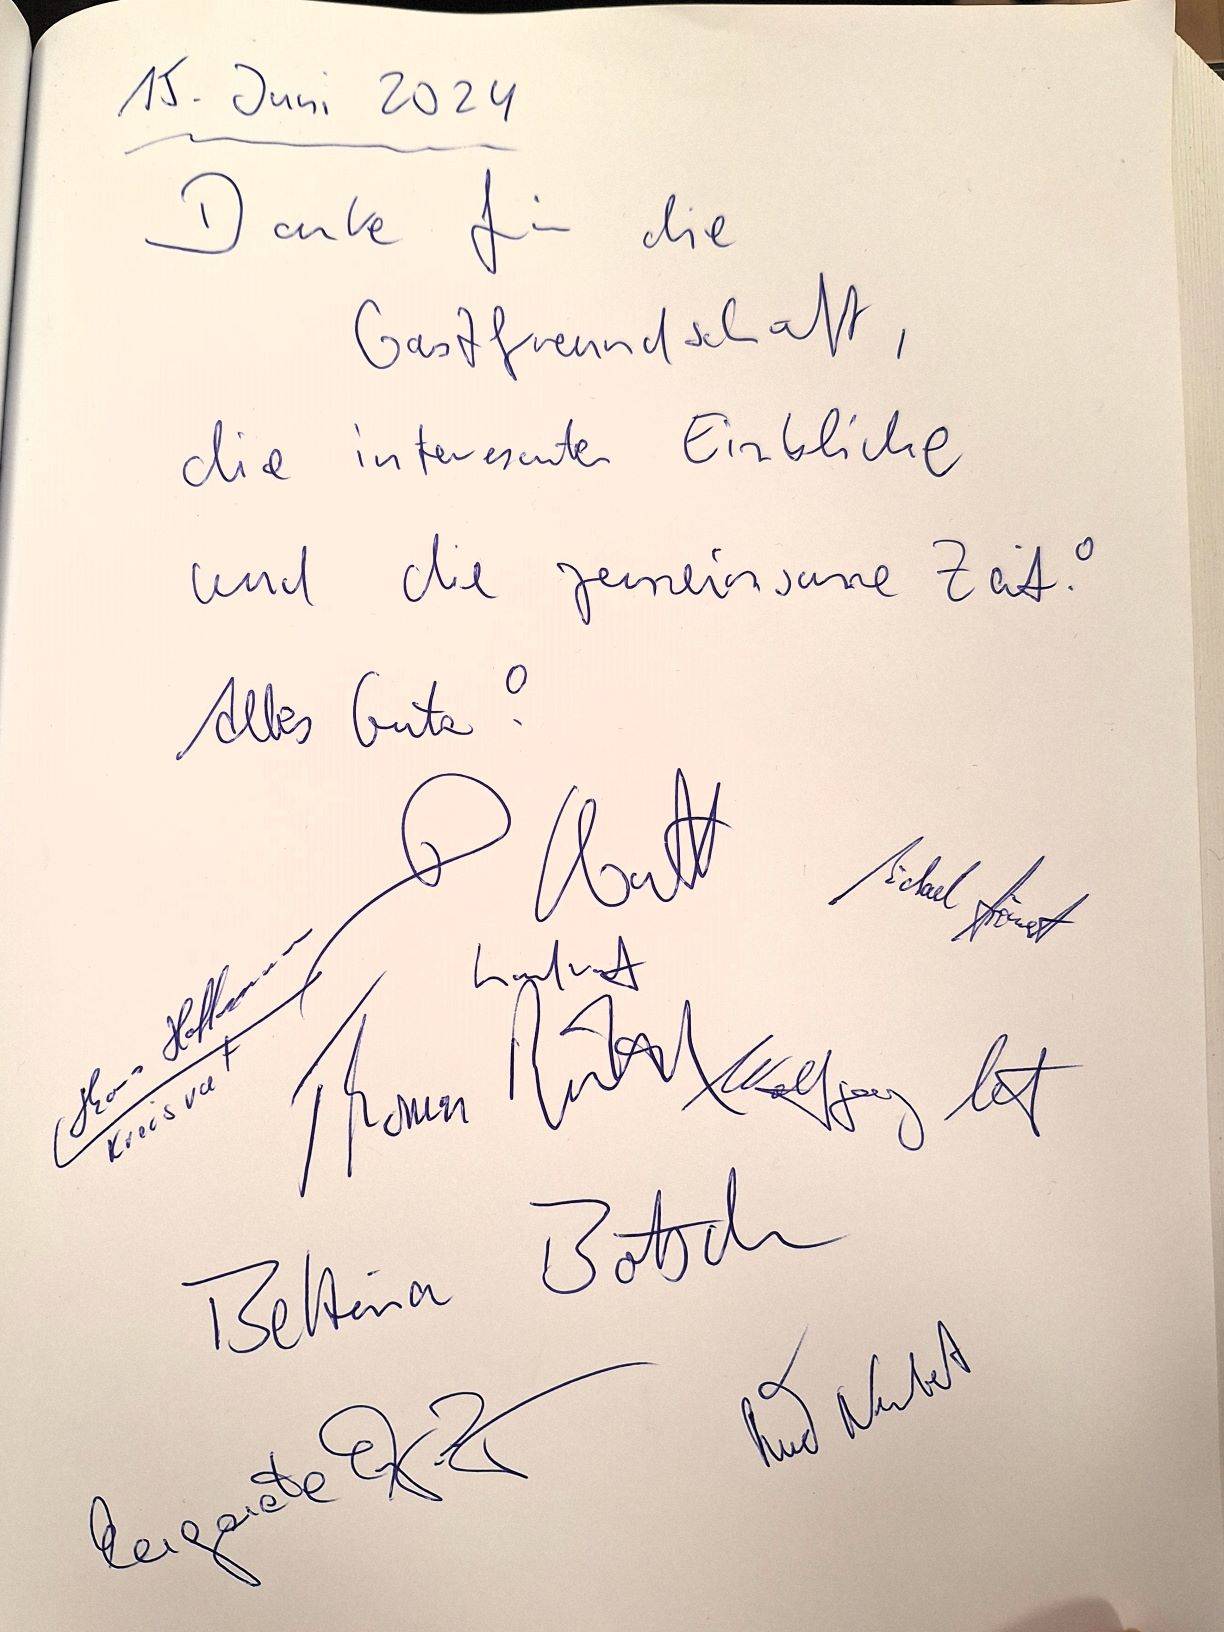 15. Juni 2024
Danke für die
Gastfreundschaft,
die interessanten Einblicke
und die gemeinsame Zeit!
Alles Gute!
Landrat
Michael
Thomas Hoffmann
Kreisrat
Thomas
Wolfgang
Bettina Botsch
Margarete